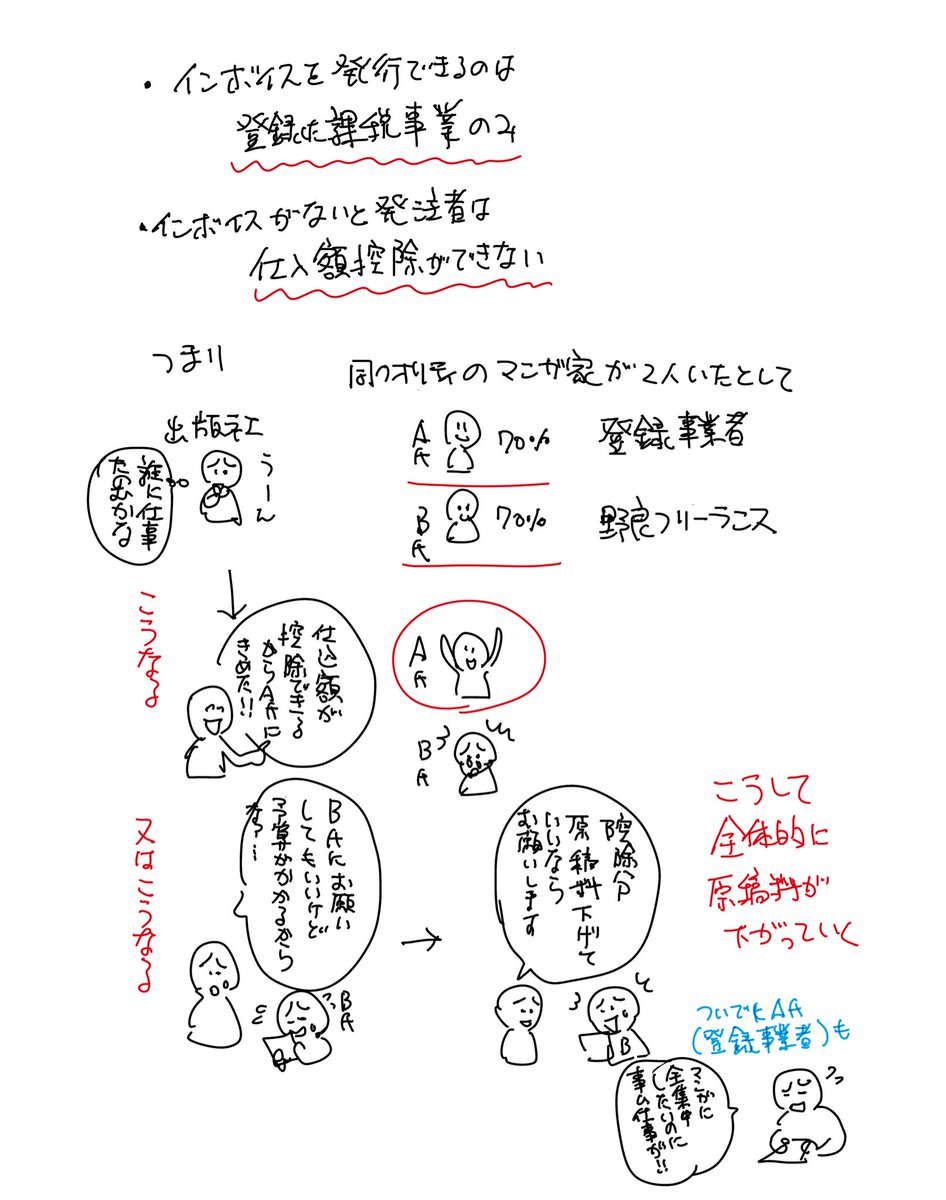 ・インボイスを発行できるのは
登録した課税事業のみ
・インボイスがないと発注者は
仕入額控除ができない
つまり
同クオリティのマンガ家が2人いたとして
出版社
うーん
誰に仕事
たのむかな
A氏 70% 登録事業者
B氏 70% 野良フリーランス
こうなる
仕込額が
控除できる
からA氏に
きめた!!
A氏
B氏
又はこうなる
B氏にお願い
してもいいけど
予算がかかるから
な…
B氏
控除分
原稿料下げて
いいなら
お願いします
B
こうして
全体的に
原稿料が
下がっていく
ついでにA氏
(登録事業者)も
マンガに
全集中
したいのに
事ム仕事が!!